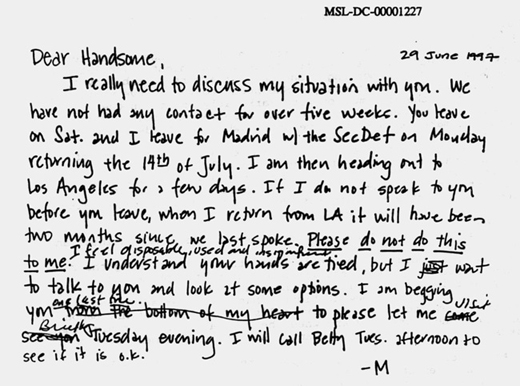 MSL-DC-00001227
29 June 1997
Dear Handsome,
I really need to discuss my situation with you. We
have not had any contact for over five weeks. You leave
on Sat. and I leave for Madrid w/ the SecDef on Monday
returning the 14th of July. I am then heading out to
Los Angeles for a few days. If I do not speak to you
before you leave, when I return from LA it will have been
two months since we last spoke. Please do not do this
I feel disposable, used and insignificant.
to me. I understand your hands are tied, but I just want
to talk to you and look at some options. I am begging
one last time visit
you from the bottom of my heart to please let me come
briefly
see you Tuesday evening. I will call Betty Tues. afternoon to
see if it is o.k.
-M